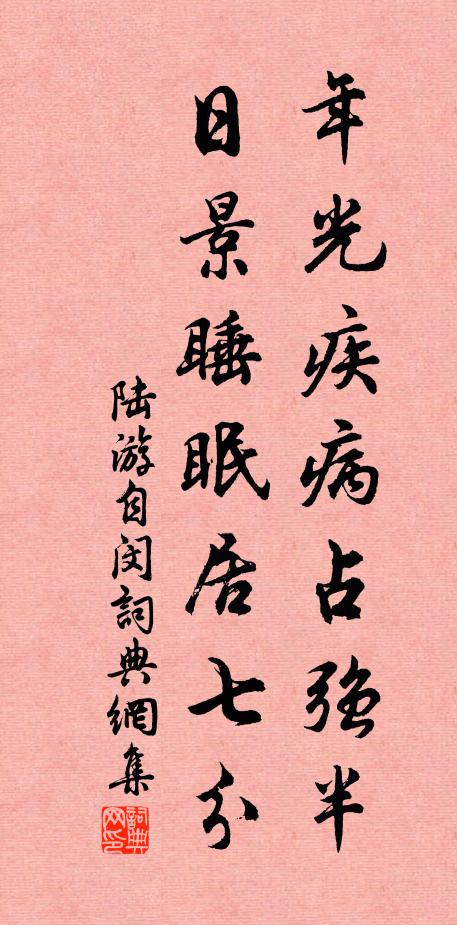 年光疾病占强半
日景睡眠居七分
陆游自闵詞典網集
詞典网印